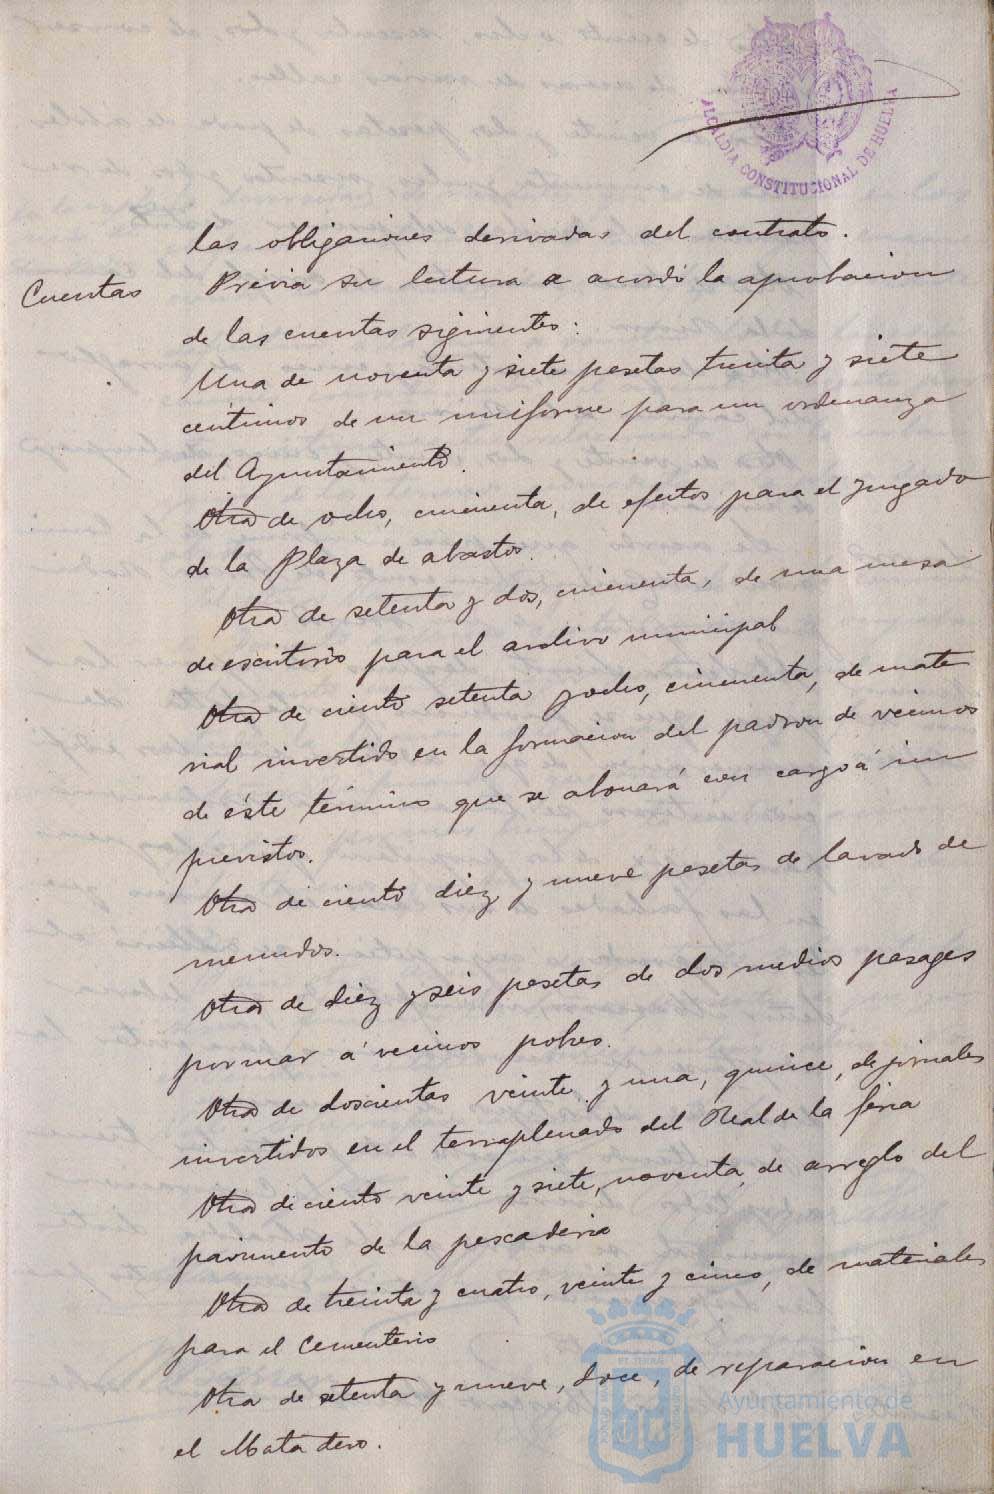 ALCALDIA CONSTITUCIONAL DE HUELVA
las obligaciones derivadas del contrato.
Cuentas
Prévia su lectura se acordó la aprobacion
de las cuentas siguientes:
Una de noventa y siete pesetas treinta y siete
céntimos de un uniforme para un ordenanza
del Ayuntamiento.
Otra de ocho, cincuenta, de efectos para el juzgado
de la Plaza de abastos.
Otra de setenta y dos, cincuenta, de una mesa
de escritorio para el archivo municipal
Otra de ciento setenta y ocho, cincuenta, de mate
rial invertido en la formacion del padron de vecinos
de éste término que se abonará con cargo á im
previstos.
Otra de ciento diez y nueve pesetas de lavado de
menudos.
Otra de diez y seis pesetas de dos medios pasages
por mar á vecinos pobres.
Otra de doscientas veinte y una, quince, de jornales
invertidos en el terraplenado del Real de la feria
Otra de ciento veinte y siete, noventa, de arreglo del
pavimento de la pescaderia
Otra de treinta y cuatro, veinte y cinco, de materiales
para el Cementerio
Otra de setenta y nueve, doce, de reparacion en
el Matadero.
Ayuntamiento de
HUELVA